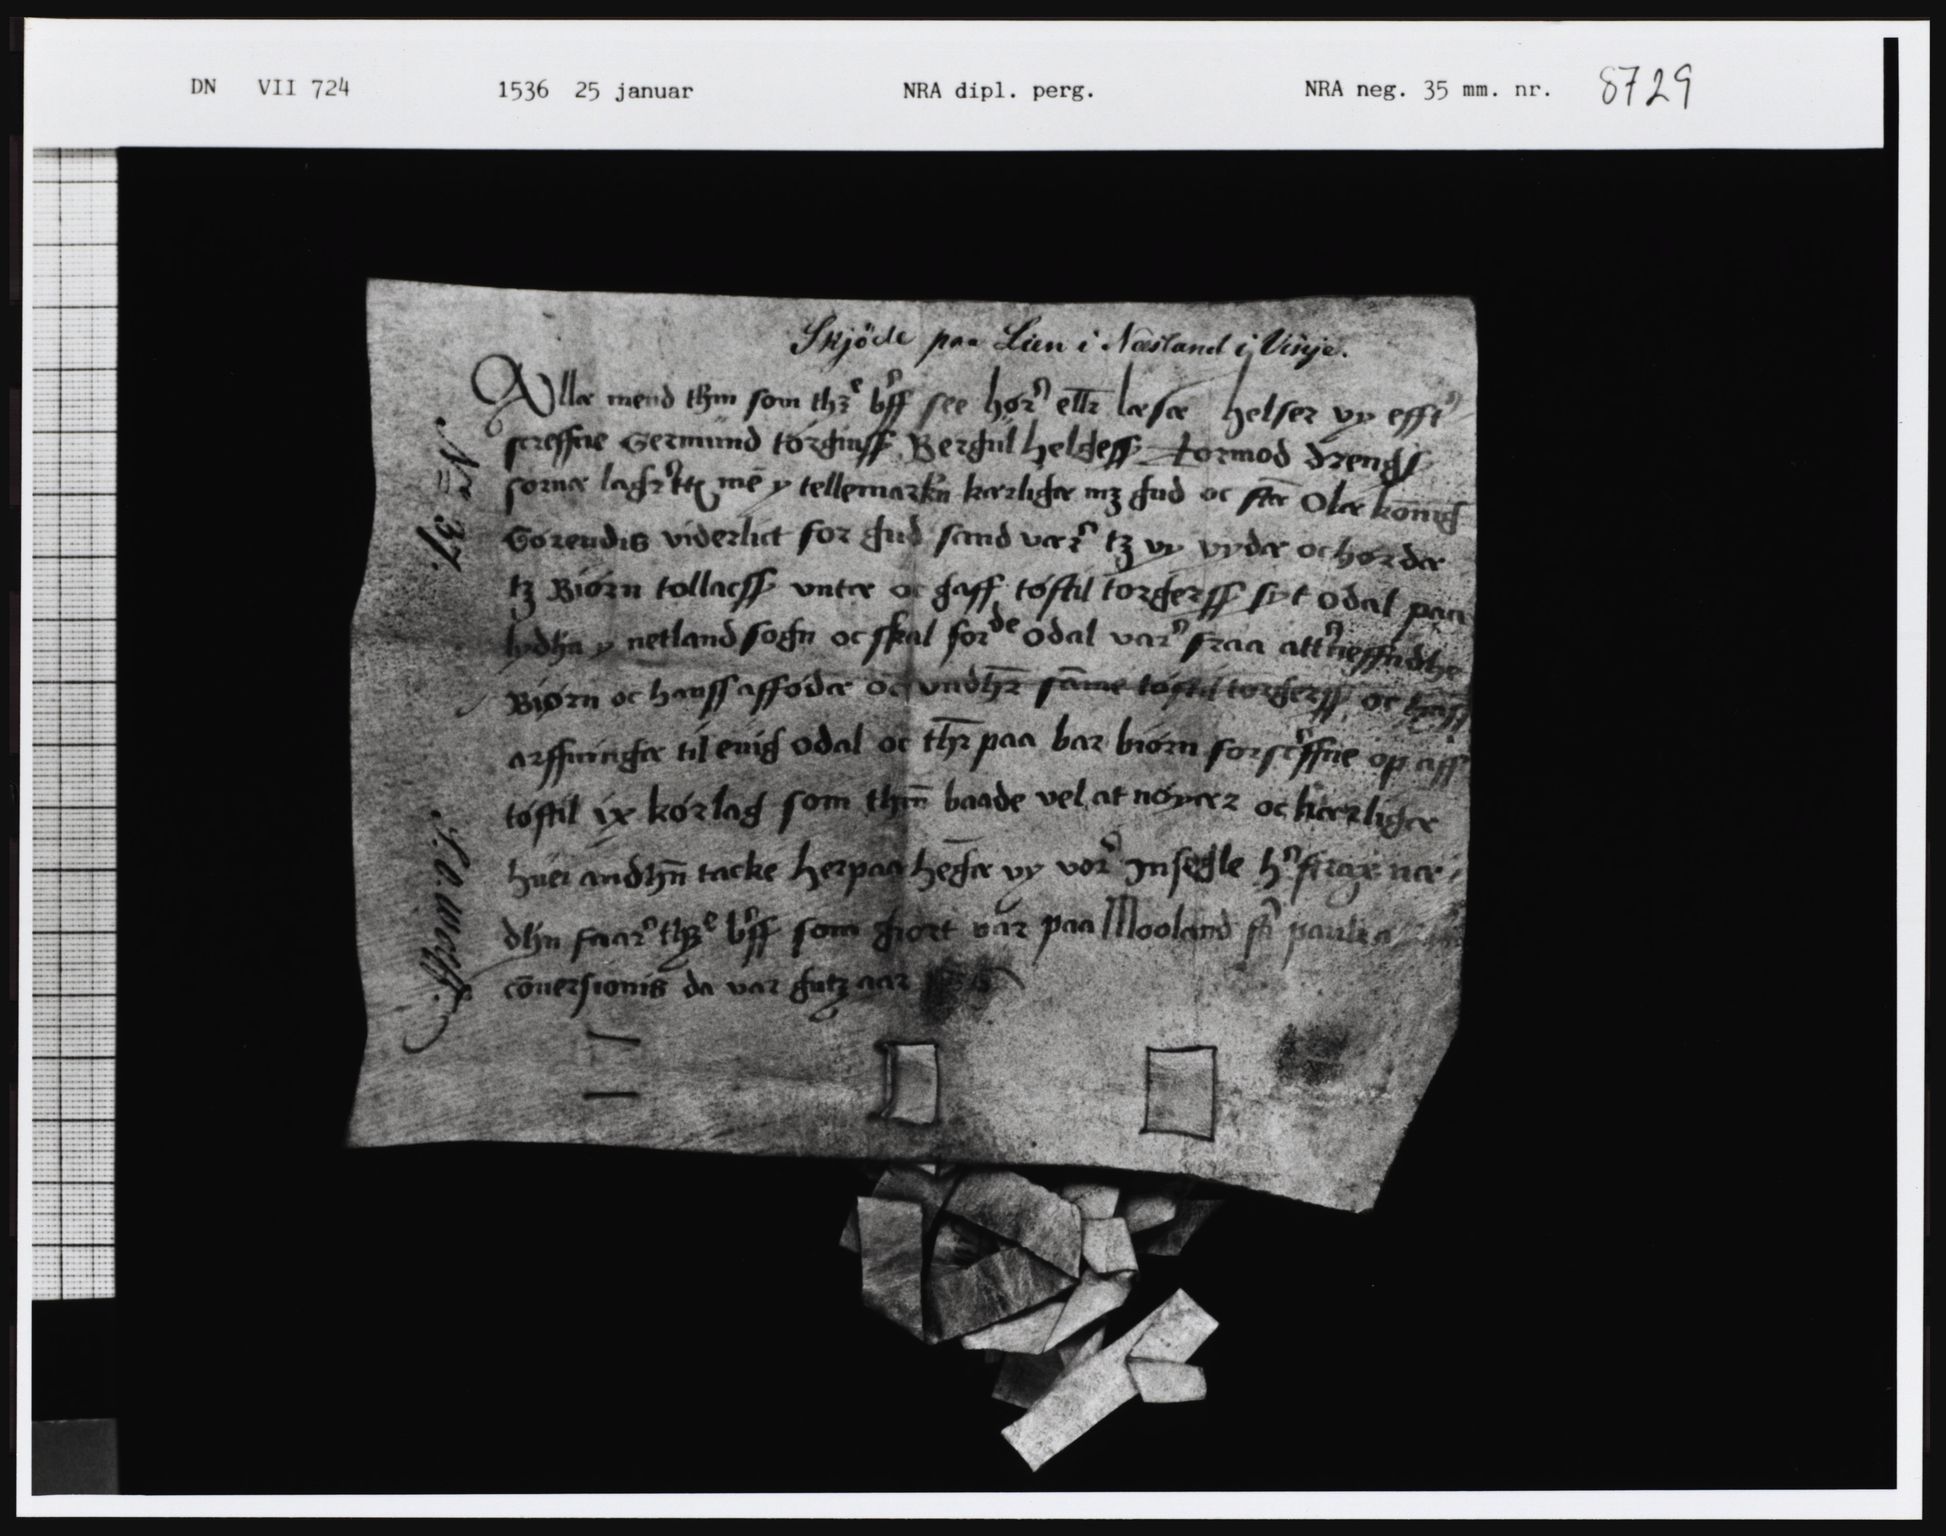 DN VII 724 1536 25 januar NRA dipl. perg. NRA neg. 35 mm. nr. 8729
Skjöde paa Lien i Næsland i Vinje.
Allæ mend thm som thꝫe bff see hør ellr læsæ helser vy efft
screffne Germund torgiuss Bergul helgess tormod drengs
sornæ lagr mē y tellemarkn kærligæ mꝫ gud oc Olæ konnig
Górendis viderlict for gud sand vær tꝫ vy vydæ oc hørdæ
tꝫ Biórn tollacss vntæ oc gaff tóftil torgerss syt odal paa
lydhn y netland sogn oc skal forde odal var fraa att neffndhe
Biørn oc hanss affødæ oc vndhr sāme tóftil torgerss oc hans
arffningæ til euig odal oc thr paa bar biórn forscffne op aff
tóftil ix kórlag som thm baade vel at nóyær oc kærligæ
huer andhn tacke herpaa hēgæ vy vor Jnsegle h næ
dhn faar thꝫe bff som giort var paa Mooland pauli
cōuersionis da var gutꝫ aar
N= 37.